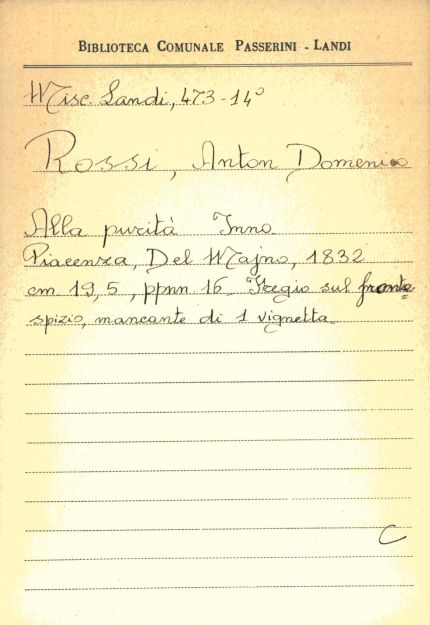 BIBLIOTECA COMUNALE PASSERINI - LANDI
Misc. Landi, 473-14°
Rossi, Anton Domenico
Alla purità Inno
Piacenza, Del Majno, 1832
cm 19,5, ppnn 16 - Fregio sul fronte=
spizio, mancante di 1 vignetta.
C